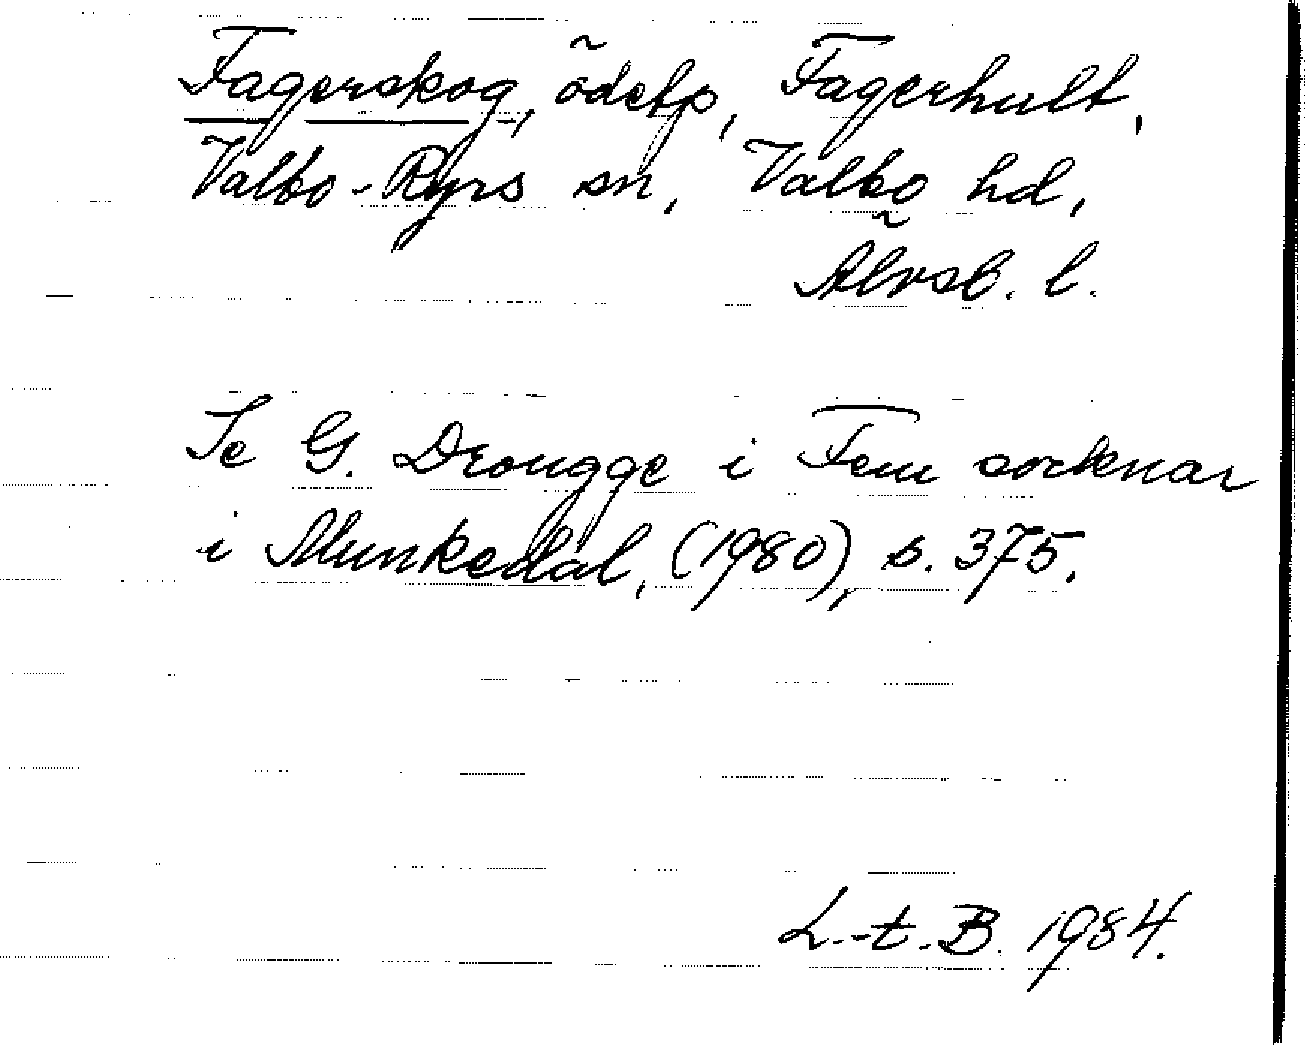 Fagerskog, ödetp, Fagerhult,
Valbo-Ryrs sn, Valbo hd,
Älvsb. l.
Se G. Drougge i Fem socknar
i Munkedal, (1980), s. 375.
L.-t. B. 1984.